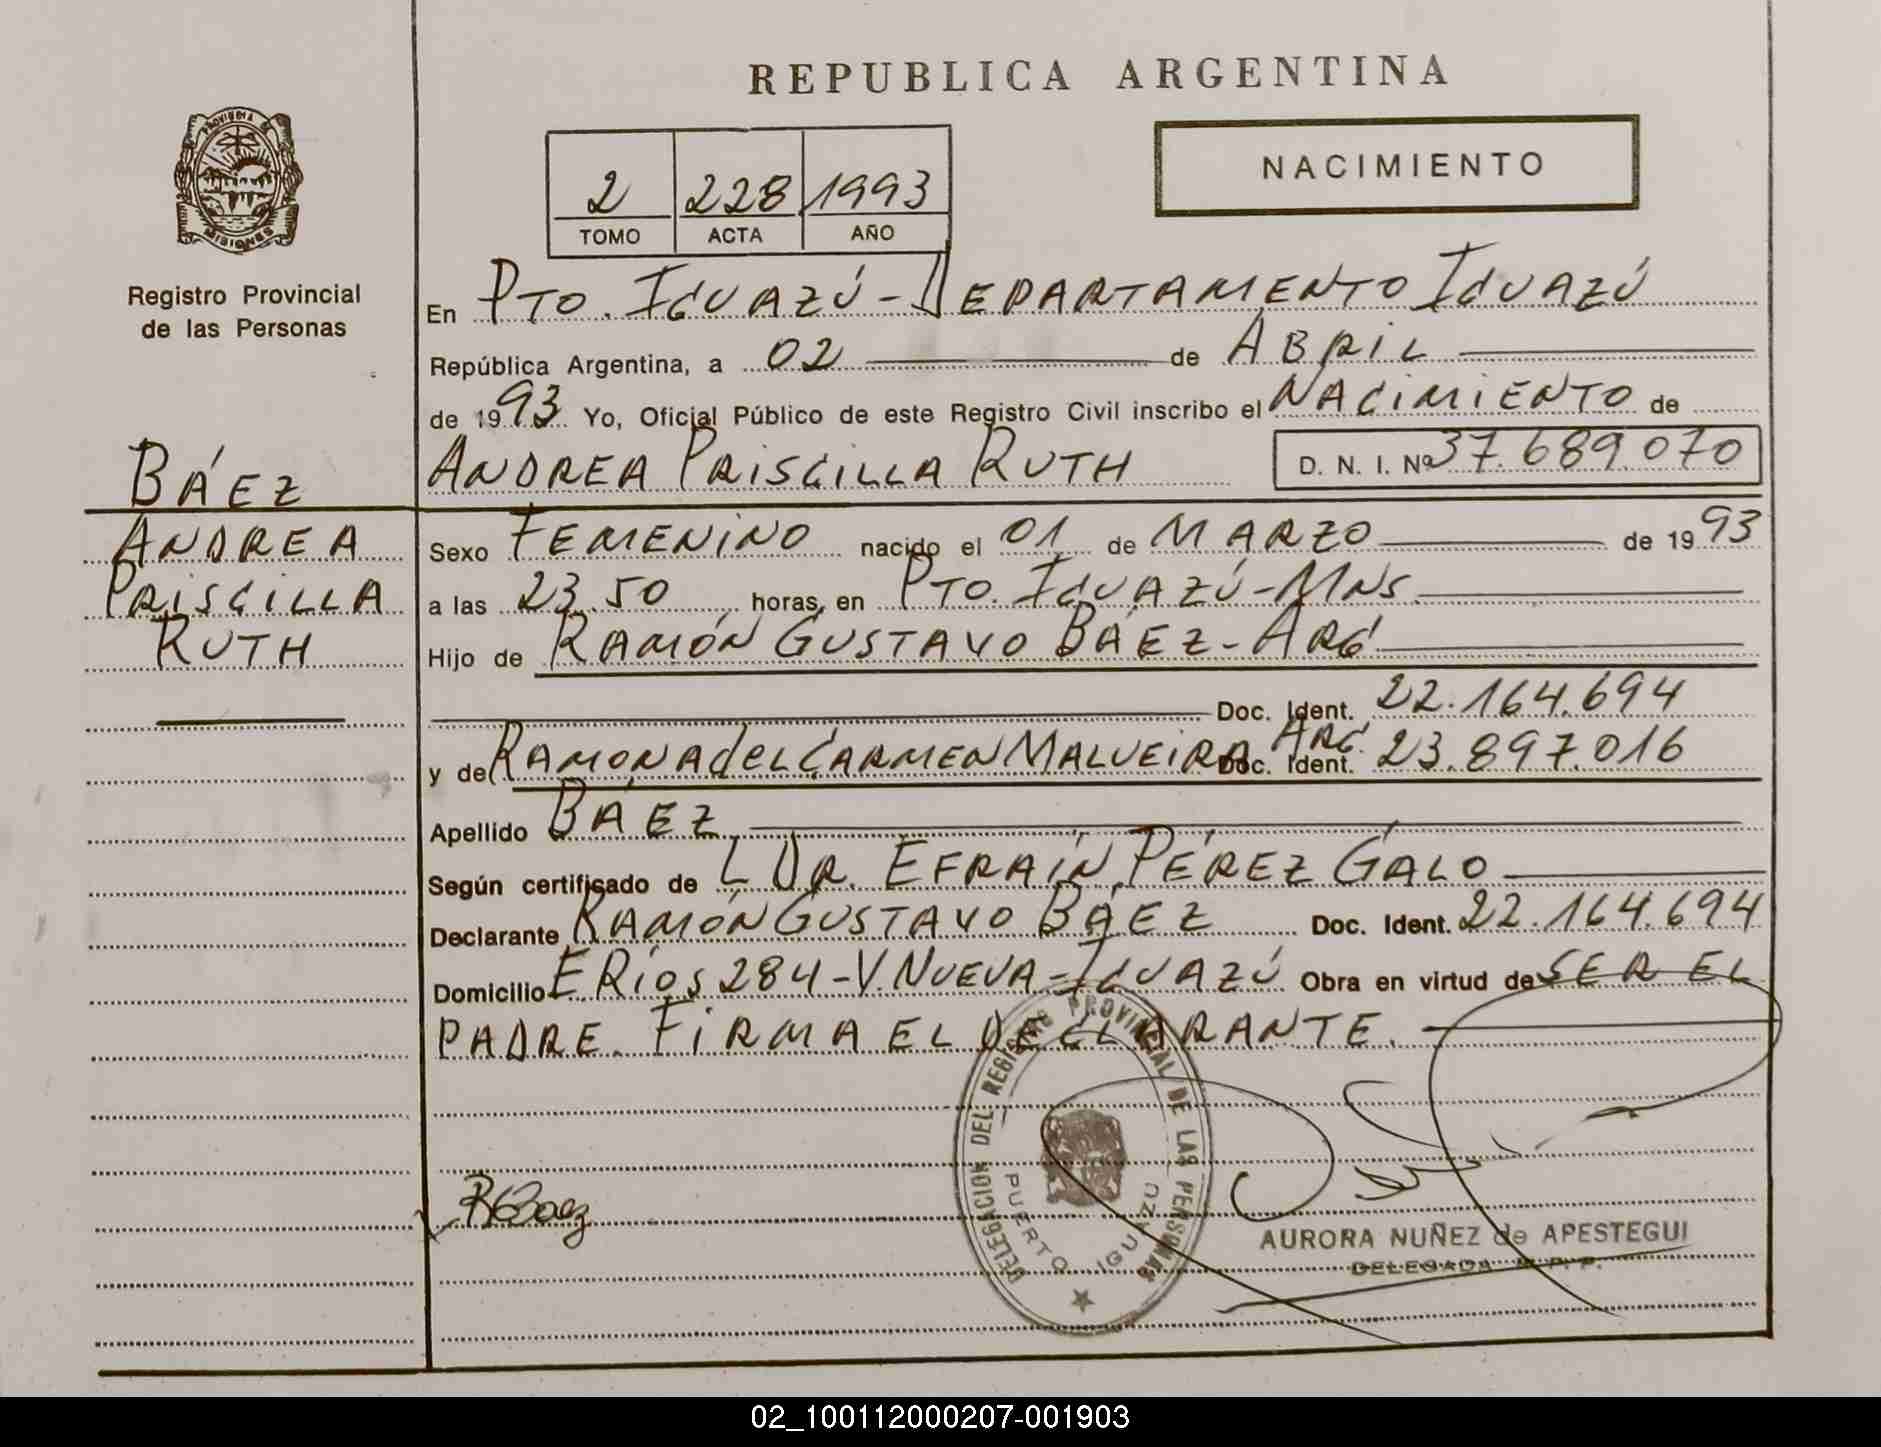 REPUBLICA ARGENTINA
PROVINCIA DE MISIONES
Registro Provincial
de las Personas
2 228 1993
TOMO ACTA AÑO
NACIMIENTO
En PTO. IGUAZÚ - DEPARTAMENTO IGUAZÚ
República Argentina, a 02 de ABRIL
de 1993 Yo, Oficial Público de este Registro Civil inscribo el NACIMIENTO de
ANDREA PRISCILLA RUTH D. N. I. Nº 37.689.070
BÁEZ
ANDREA
PRISCILLA
RUTH
Sexo FEMENINO nacido el 01 de MARZO de 1993
a las 23.50 horas, en PTO. IGUAZÚ - MNS.
Hijo de RAMÓN GUSTAVO BÁEZ - ARG.
Doc. Ident. 22.164.694
y de RAMONA del CARMEN MALVEIRA ARG. Doc. Ident. 23.897.016
Apellido BÁEZ
Según certificado de L DR. EFRAÍN PÉREZ GALO
Declarante RAMÓN GUSTAVO BÁEZ Doc. Ident. 22.164.694
Domicilio E. RÍOS 284 - V. NUEVA - IGUAZÚ Obra en virtud de SER EL
PADRE. FIRMA EL DECLARANTE.
DELEGACION DEL REGISTRO PROVINCIAL DE LAS PERSONAS
PUERTO IGUAZU
RGBaez
AURORA NUÑEZ de APESTEGUI
DELEGADA R. P. P.
02_100112000207-001903